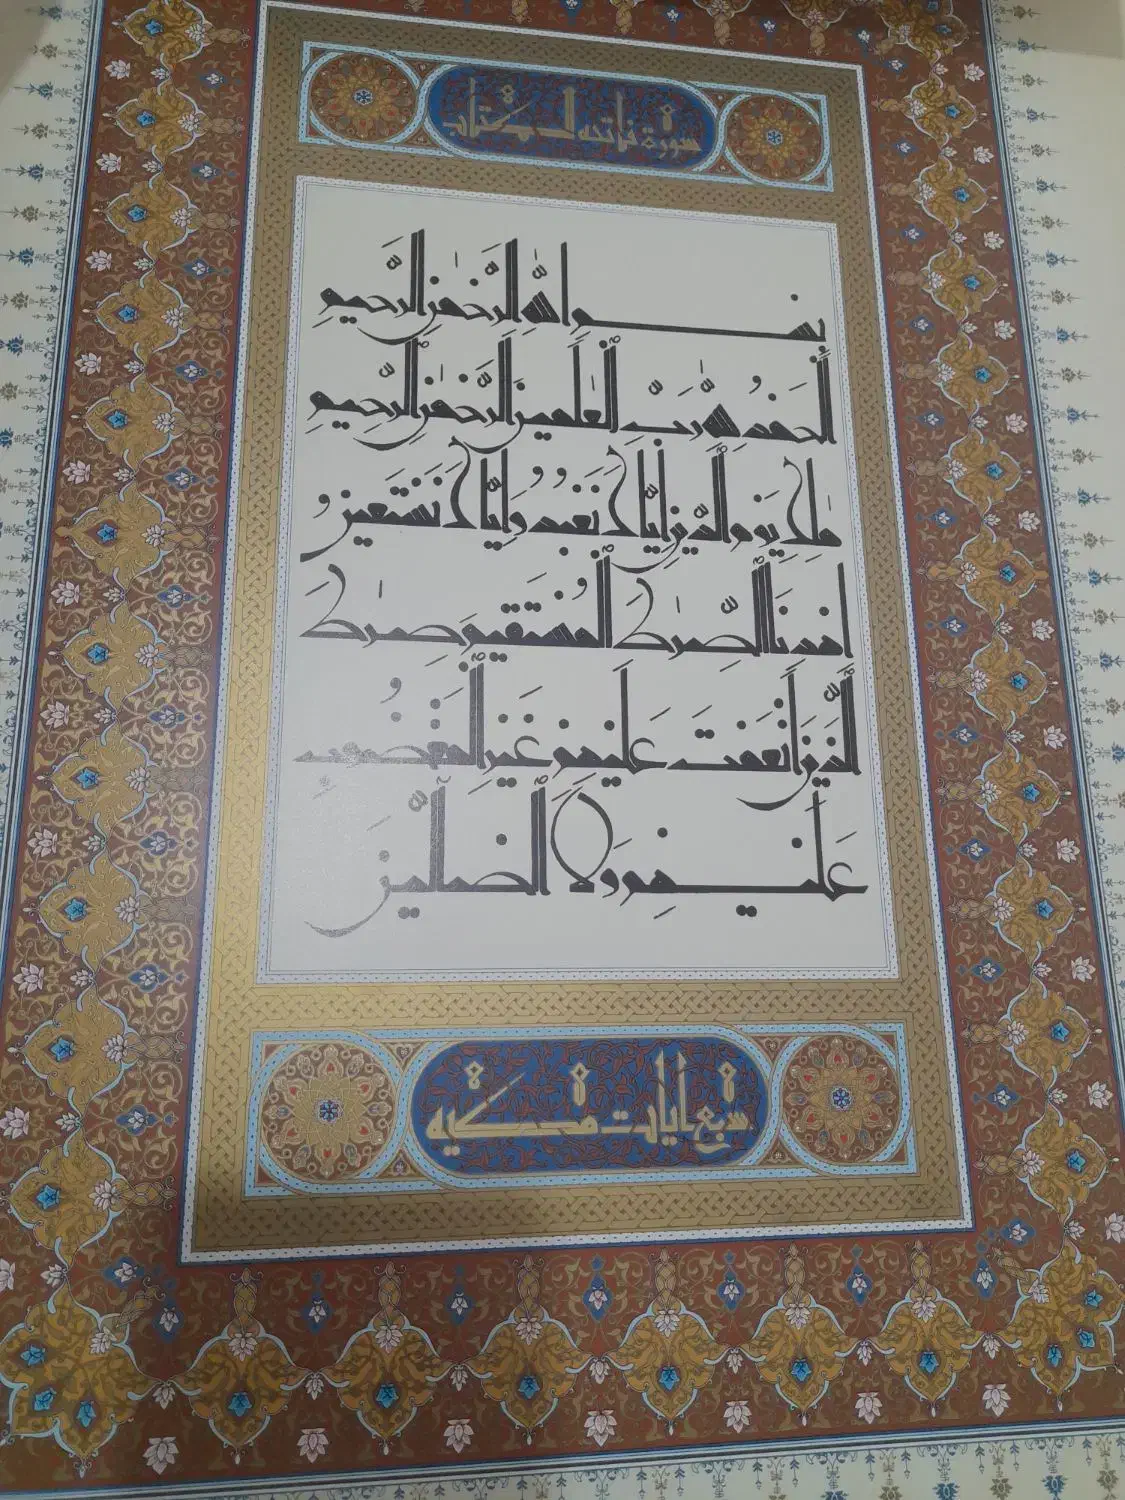 سورة فاتحة الكتاب
بسم الله الرحمن الرحيم
الحمد لله رب العلمين الرحمن الرحيم
ملك يوم الدين إياك نعبد وإياك نستعين
اهدنا الصرط المستقيم صرط
الذين أنعمت عليهم غير المغضوب
عليهم ولا الضالين
سبع ايات مكية